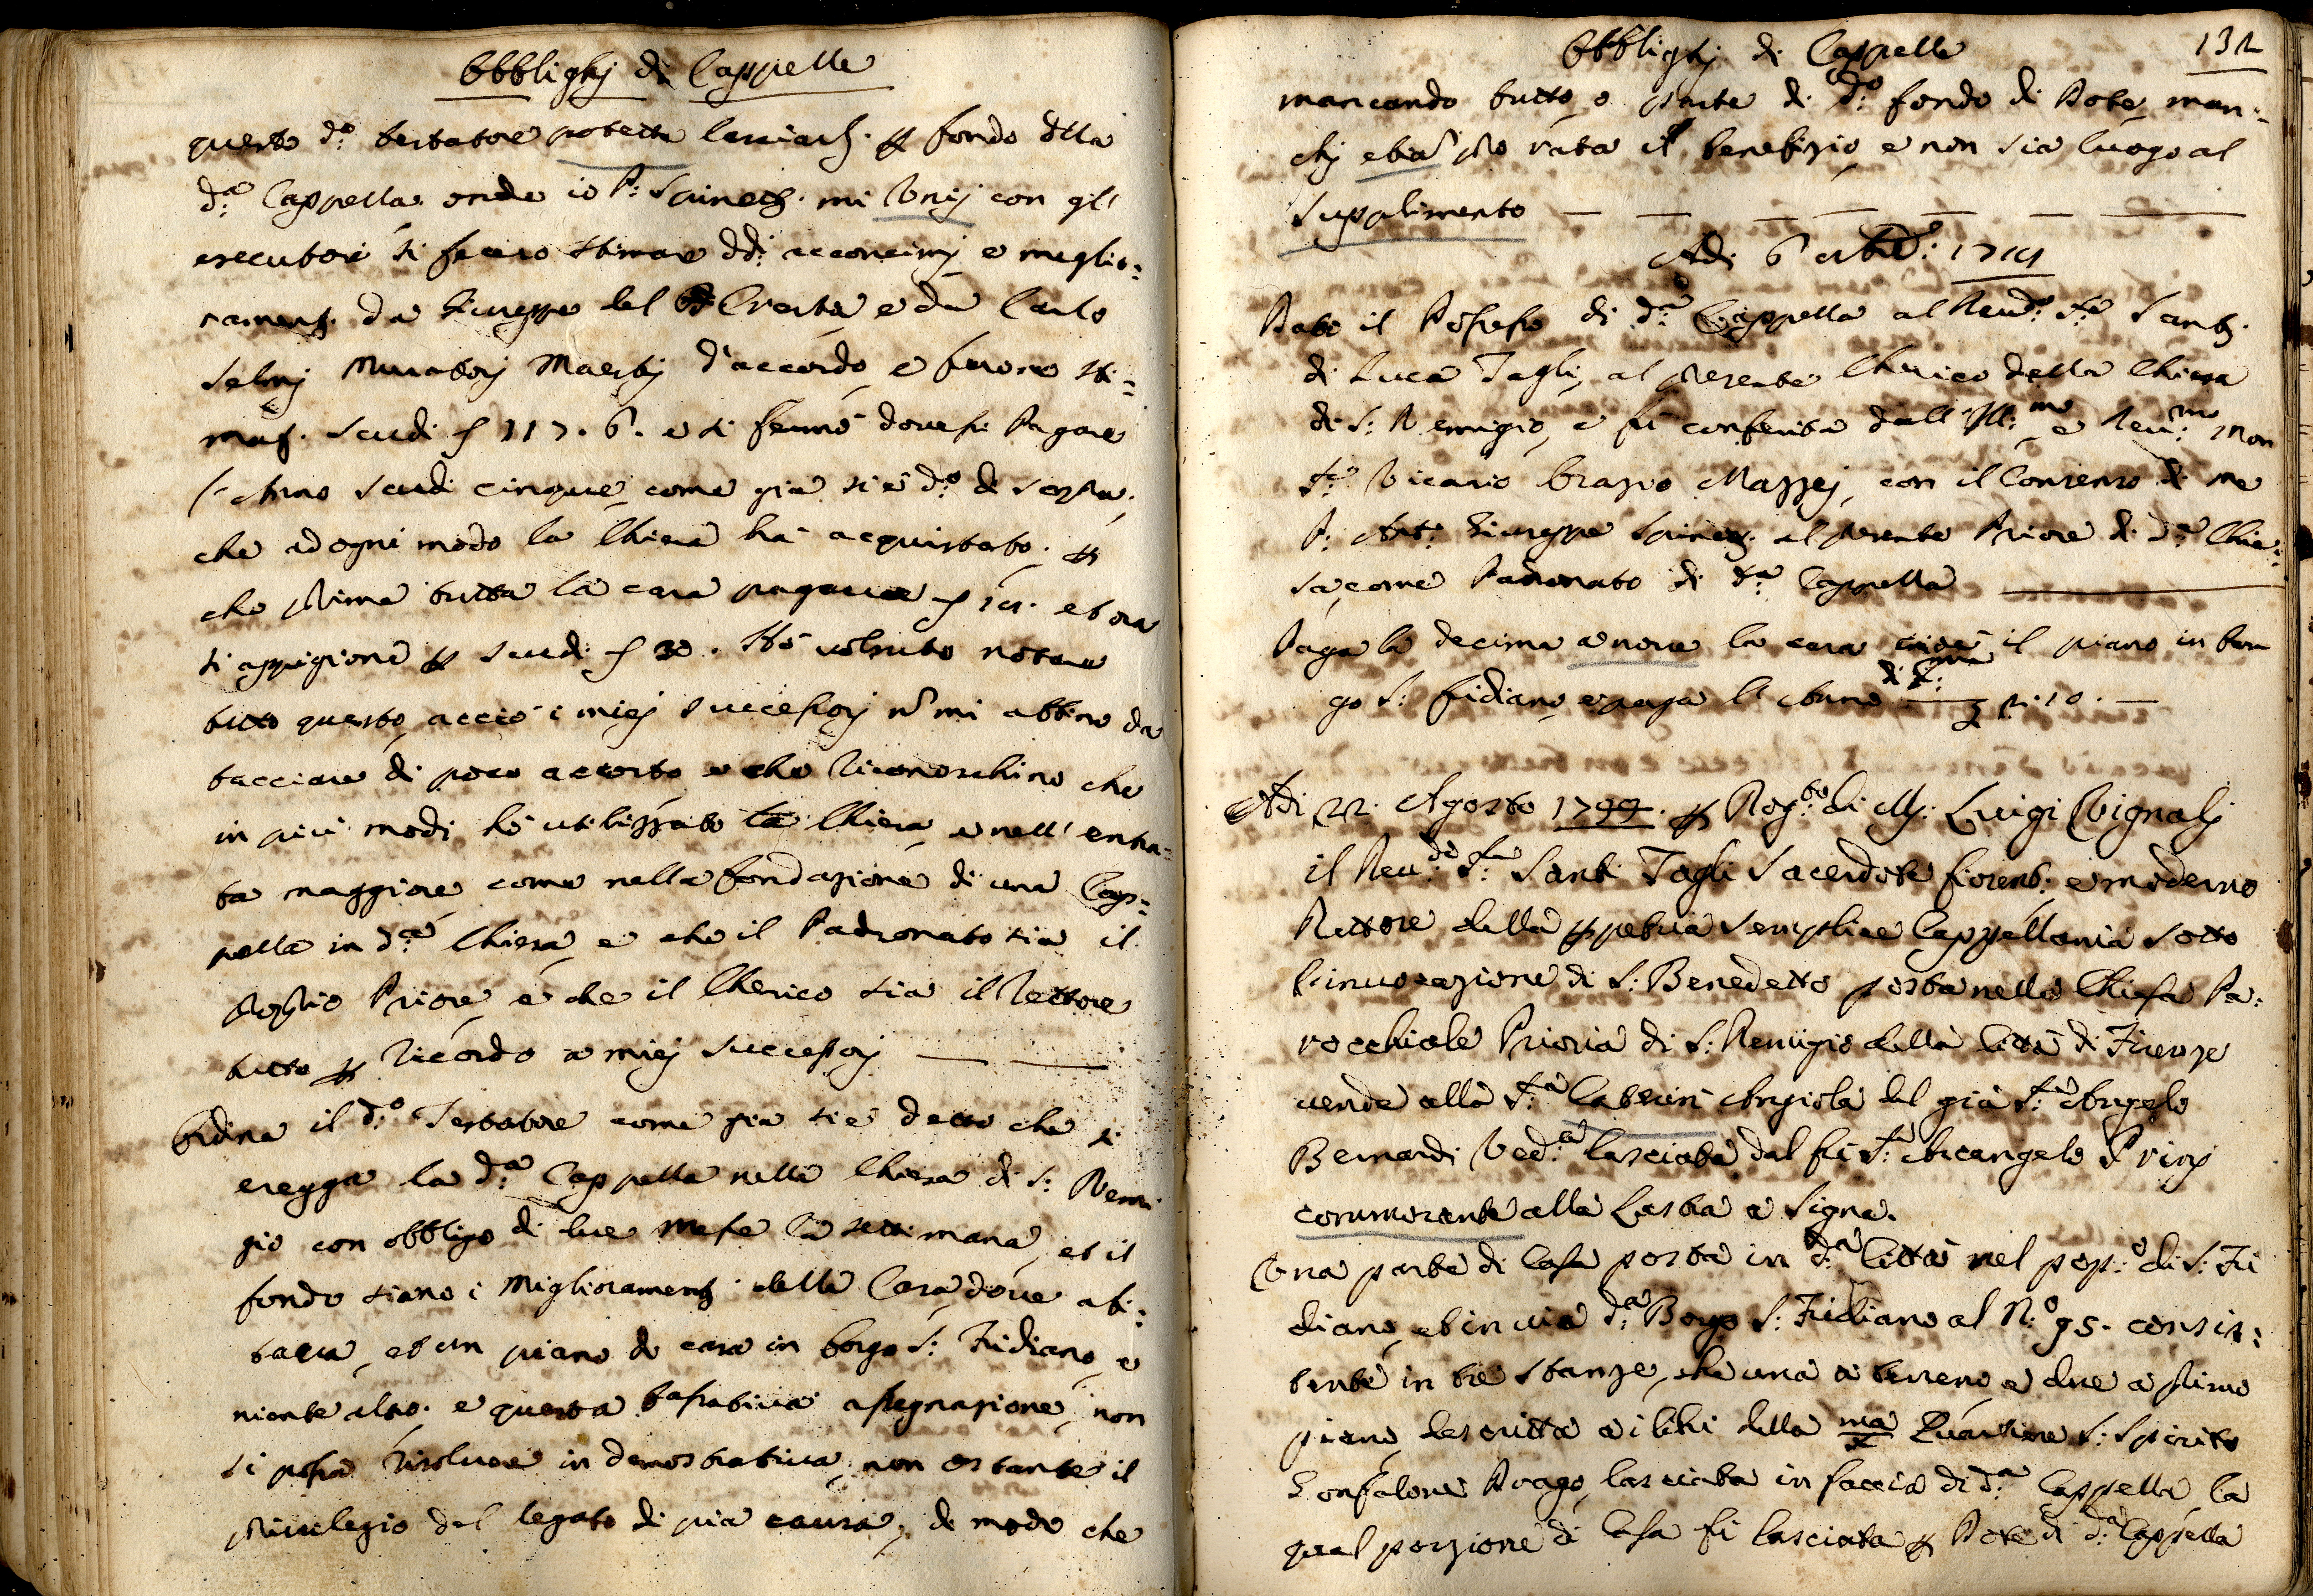 Obblighj di Cappelle
questo d.º testatore potetta lasciarsi. p fondo dlla
d.ª Cappella onde io P: Spinetj. mi Vnij con gl'
esecutori si fecero stimar dd: acconcimj e miglio:
ramenti. da Giuseppe del Cresta e da Carlo
Selmj Muratorj Maestrj d'accordo, e furono sti=
mati. scudi 117. 6. e si fermò dovesse Pagare
l'Anno scudi cinque, come già si è d.º di sopra,
che ad ogni modo la Chiesa hà acquistato. p
che prima tutta la casa pagava et ora
si appigiona p scudi 30. Hò voluto notare
tutto questo, acciò i miej successorj nõ mi abbino da
tacciare di poco accorto e che riconoschino che
in piu modi hò utilizzato la Chiesa, e nell' entra=
ta maggiore, come nella fondazione di una Cap=
pella in d.ª Chiesa, e che il Padronato sia il
proprio Priore, e che il Cherico sia il Rettore
tutto p ricordo a miej successorj
Ordina il d.º Testatore come già si è detto che si
eregga la d.ª Cappella nella Chiesa di S: Remi
gio con obbligo di due Messe la settimana, et il
fondo siano i Miglioramenti della Casa, dove abi:
tava, et un piano di casa in borgo S: Fridiano, e
niente altro. e questa tassativa assegnazione, non
si possa risolvere in demostrativa, non ostante il
privilegio del legato di pia causa, di modo che
Obblighj di Cappelle 132
mancando tutto, o parte di d.º fondo di Dote, man:
chj etiã pro rata il benefizio, e non sia luogo al
Supplimento
Adi 6
Dato il Possesso di d.ª Cappella al Reud.º S.re Santi.
di Luca Tagli, al presente Cherico della Chiesa
di S: Remigio, e fu conferita dall' Ill.mo e Reu.mo Mon
S.re Vicario Orazio Mazzej, con il Consenso di me
P: Ant.º Giuseppe Spinetj. al presente Priore di d.ª Chie:
sa, come Padronato di d.ª Cappella
Paga la decima la casa cioè il piano in bor
go S: fridiano, e paga l'Anno di x.ma 2.10.
Adi 22. Agosto 1799. p Rog.to di M. Luigi Vignalj
il Reu.do S.re Santi Tagli Sacerdote fiorent: e moderno
Rettore della ppetua semplice Cappellania sotto
l'inuocazione di S: Benedetto posta nella Chiesa Pa:
rocchiale Prioria di S: Remigio della Città di Firenze
uende alla S.ra Caterina Angiola del già S.re Angelo
Bernardi Ved.a lasciata dal fù S.re Arcangelo
commorante alla Lastra a Signa.
Vna parte di Casa posta in d.ª Città nel pop.º di S: Fri
diano, et in uia d.ª Borgo S: Fridiano al N.º 95. consis:
tente in tre stanze, che una a terreno, e due a primo
piano, descritta a i libri della x.ma Quartiere S: Spirito
Gonfalone Drago, lasciata in faccia di d.ª Cappella, la
qual porzione di Casa fù lasciata p Dote di d.ª Cappella